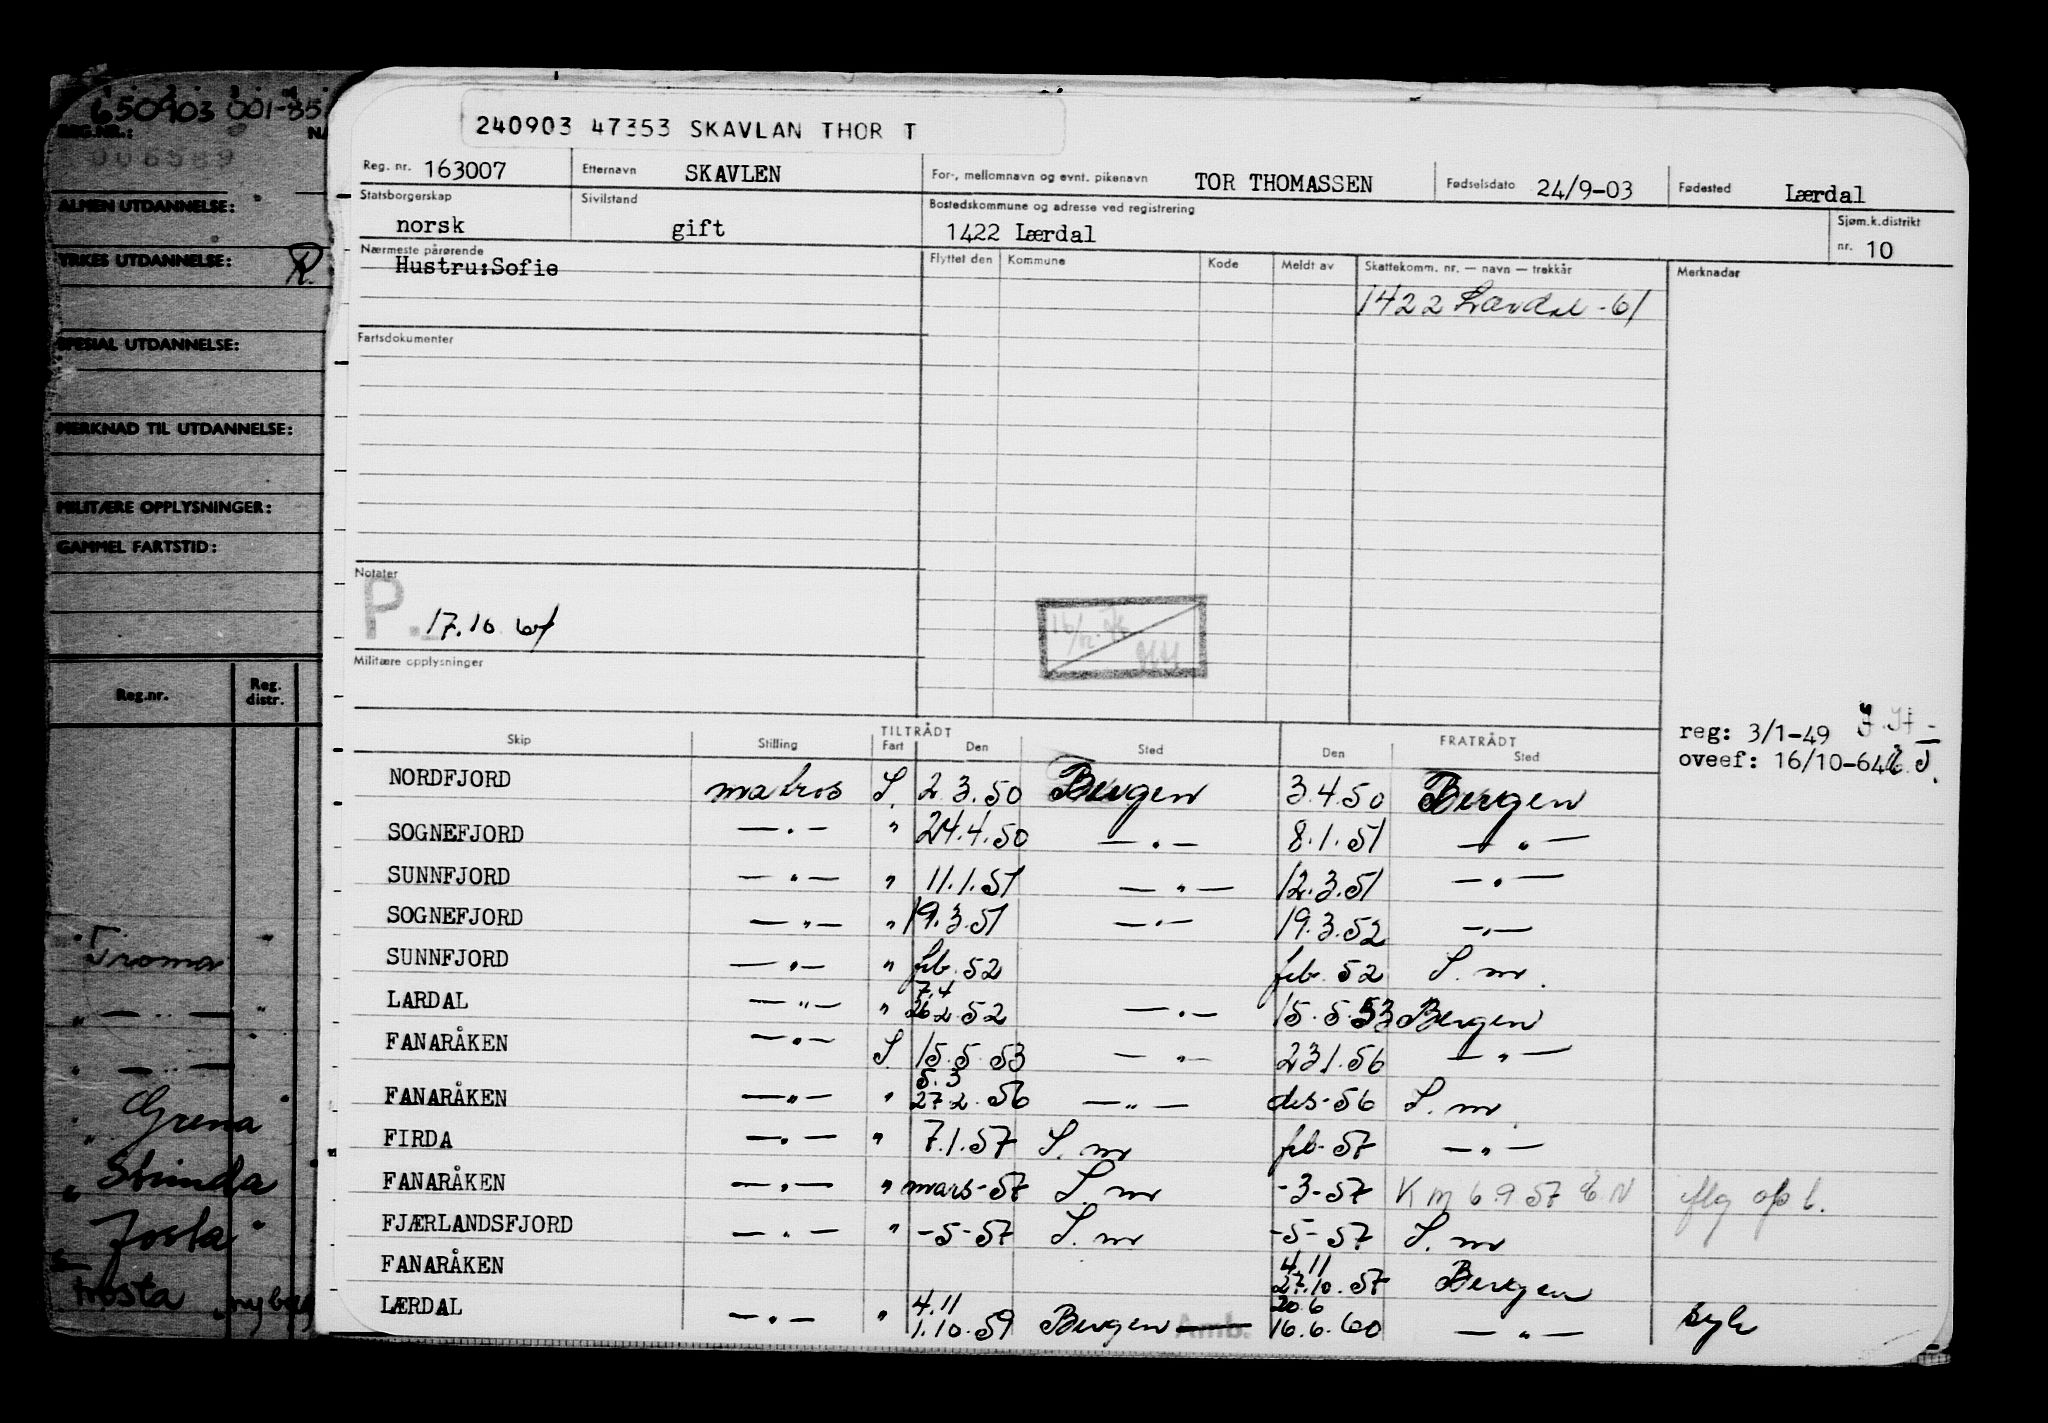 650903 001-35
REG.NR.: NA
006589
ALMEN UTDANNELSE:
YRKES UTDANNELSE: R.
SPESIAL UTDANNELSE:
MERKNAD TIL UTDANNELSE:
MILITÆRE OPPLYSNINGER:
GAMMEL FARTSTID:
Reg.nr. Reg. distr.
Troma
" — " —
" — " —
" Grena "
" Strinda "
" Josta "
Trosta
240903 47353 SKAVLAN THOR T
Reg. nr. 163007 Etternavn SKAVLEN For-, mellomnavn og evnt. pikenavn TOR THOMASSEN Fødselsdato 24/9-03 Fødested Lærdal
Statsborgerskap norsk Sivilstand gift Bostedskommune og adresse ved registrering 1422 Lærdal Sjøm.k.distrikt nr. 10
Nærmeste pårørende Hustru:Sofie Flyttet den Kommune Kode Meldt av Skattekomm. nr. — navn — trekkår Merknader
1422 Lærdal -61
Fartsdokumenter
Notater
P. 17.10 64
Militære opplysninger
reg: 3/1-49
oveef: 16/10-64
TILTRÅDT FRATRÅDT
Skip Stilling Fart Den Sted Den Sted
NORDFJORD matros S. 2.3.50 Bergen 3.4.50 Bergen
SOGNEFJORD — " — " 24.4.50 — " — 8.1.51 — " —
SUNNFJORD — " — " 11.1.51 — " — 12.3.51 — " —
SOGNEFJORD — " — " 19.3.51 — " — 19.3.52 — " —
SUNNFJORD — " — " feb. 52 feb. 52 S. mr.
LARDAL — " — " 7.4 26.2.52 — " — 15.5.53 Bergen
FANARÅKEN — " — S. 15.5.53 — " — 23.1.56 — " —
FANARÅKEN — " — " 5.3 27.2.56 — " — des-56 S. mr
FIRDA — " — " 7.1.57 S. mr feb-57 — " —
FANARÅKEN — " — " mars-57 S. mr -3-57 K M 6.9 57 E N flg op l.
FJÆRLANDSFJORD — " — " -5-57 S. mr -5-57 S. mr
FANARÅKEN 4.11 27.10.57 Bergen
LÆRDAL — " — " 4.11 1.10.59 Bergen Amb. 20.6 16.6.60 — " — syk